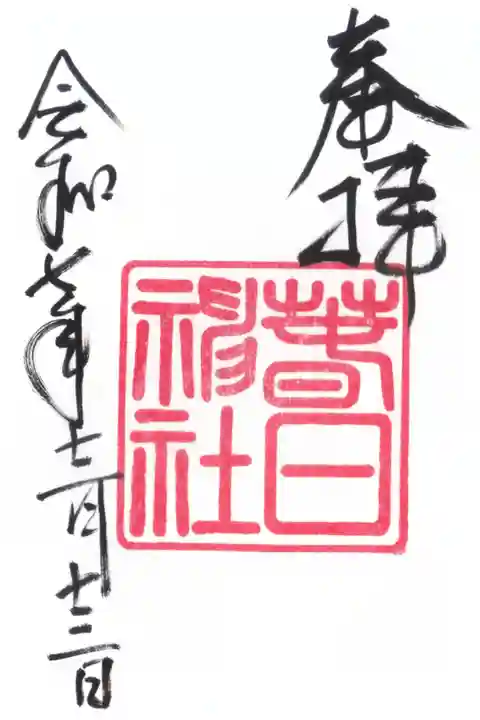 奉拝
春日
神社
令和七年十二月十三日